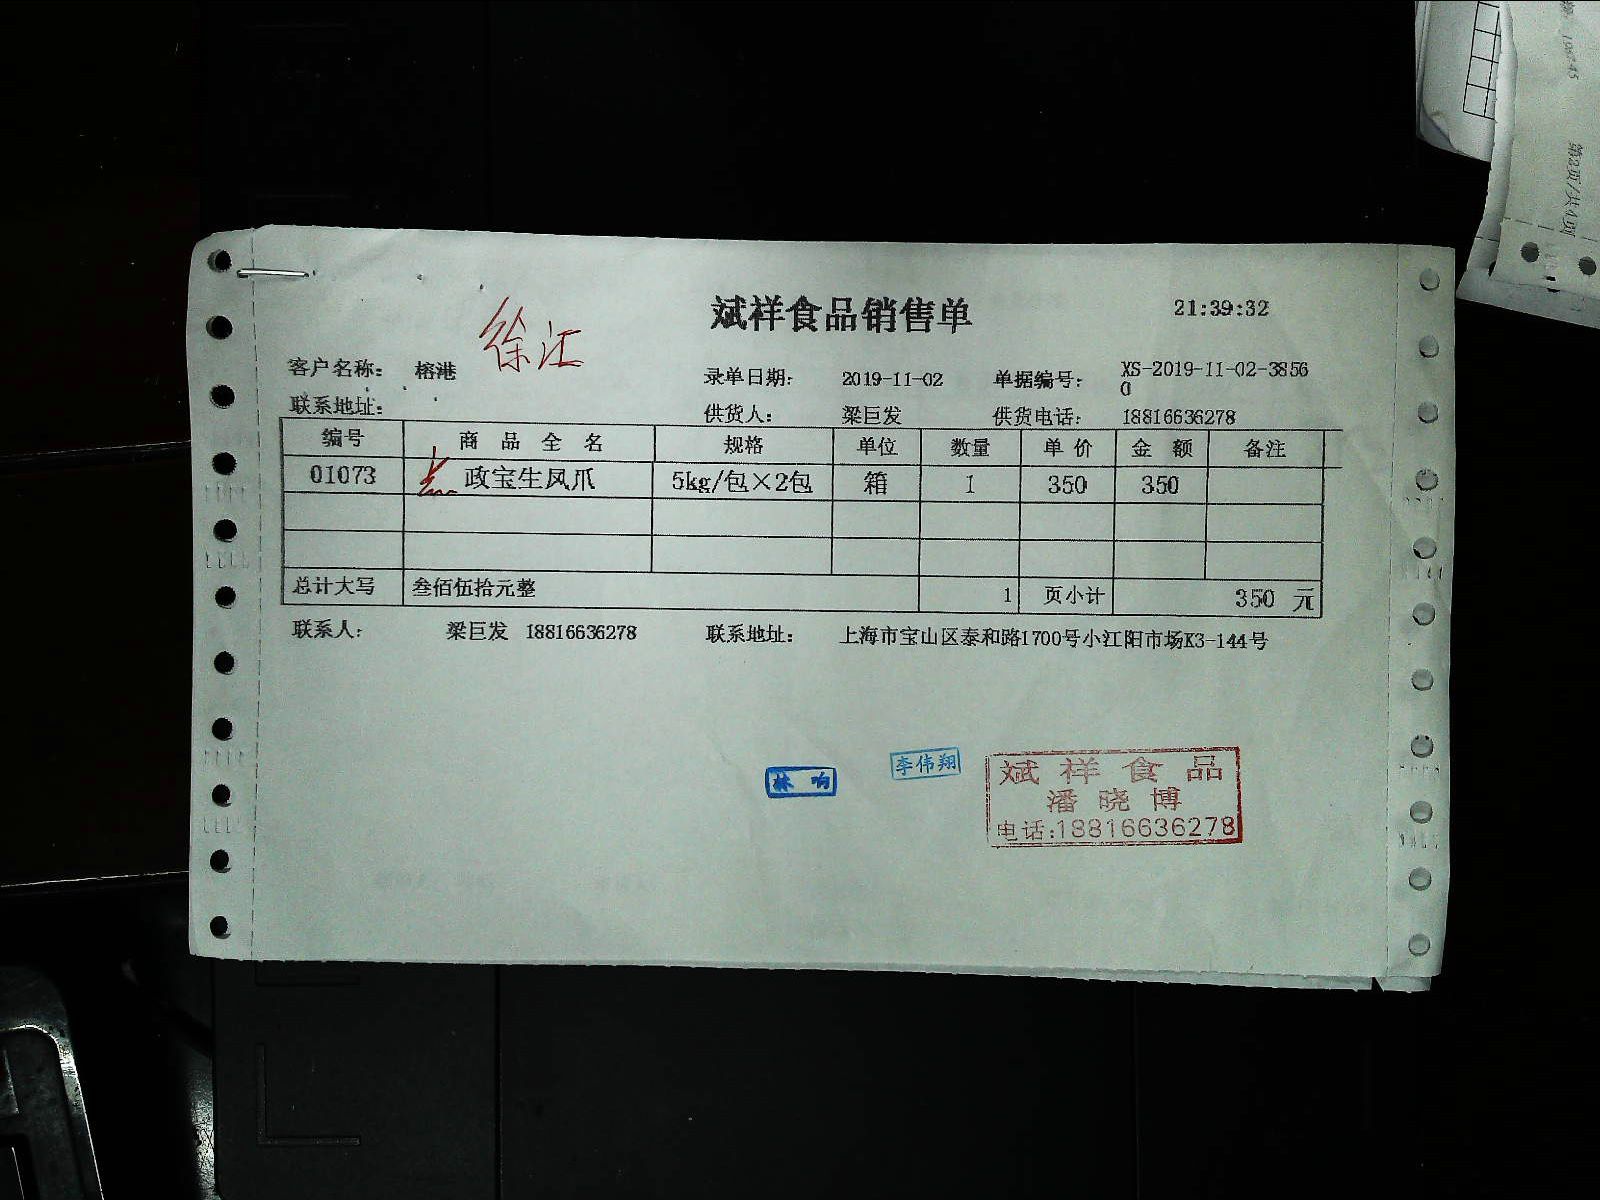 斌祥食品销售单
21:39:32
徐汇
客户名称： 榕港 录单日期： 2019-11-02 单据编号： XS-2019-11-02-3856
0
联系地址： 供货人： 梁巨发 供货电话： 18816636278
编号 商品全名 规格 单位 数量 单价 金额 备注
01073 政宝生凤爪 5kg/包×2包 箱 1 350 350
总计大写 叁佰伍拾元整 1 页小计 350 元
联系人： 梁巨发 18816636278 联系地址： 上海市宝山区泰和路1700号小江阳市场K3-144号
林响
李伟翔
斌祥食品
潘晓博
电话:18816636278
第2页/共4页